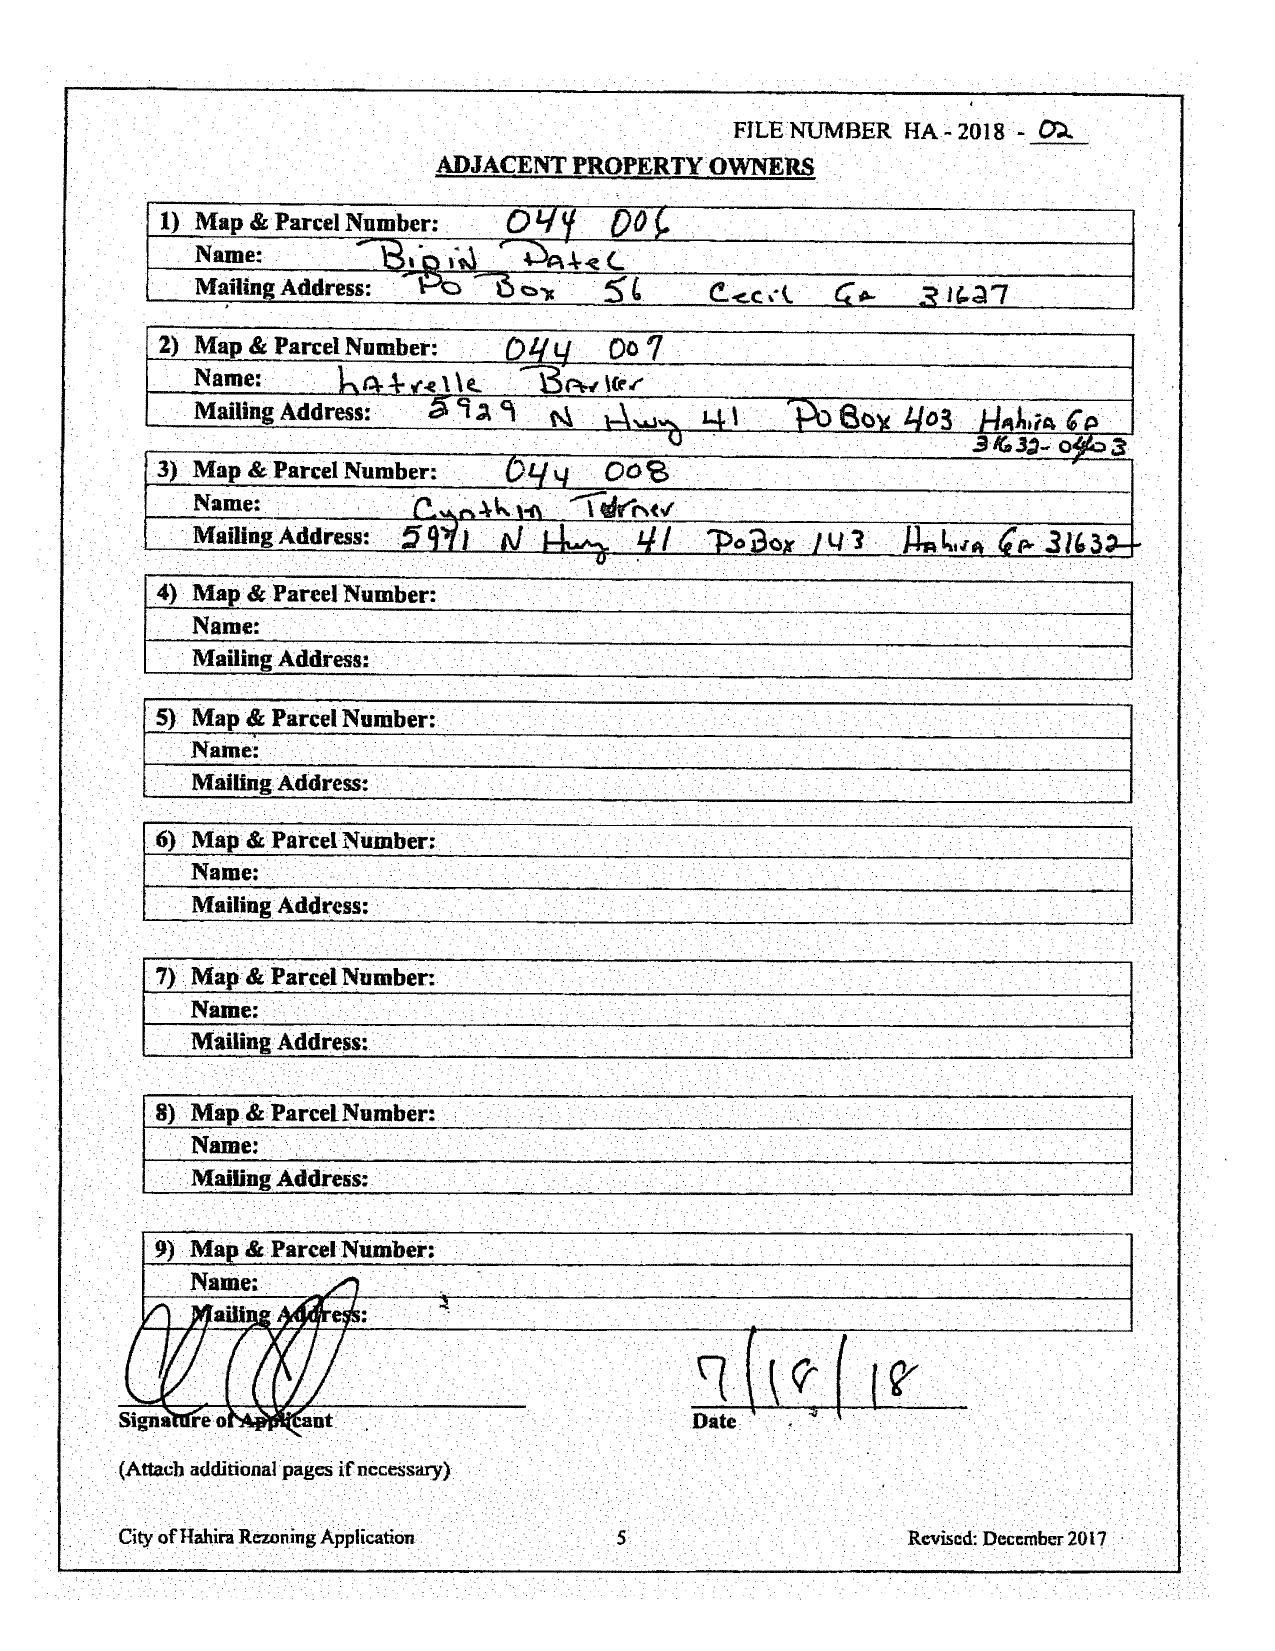 FILE NUMBER HA - 2018 - 02
ADJACENT PROPERTY OWNERS
1) Map & Parcel Number: 044 006
Name: Bipin Patel
Mailing Address: PO Box 56 Cecil Ga 31627
2) Map & Parcel Number: 044 007
Name: Latrelle Barker
Mailing Address: 5929 N Hwy 41 PO Box 403 Hahira GA
31632-0403
3) Map & Parcel Number: 044 008
Name: Cynthia Turner
Mailing Address: 5971 N Hwy 41 PO Box 143 Hahira GA 31632
4) Map & Parcel Number:
Name:
Mailing Address:
5) Map & Parcel Number:
Name:
Mailing Address:
6) Map & Parcel Number:
Name:
Mailing Address:
7) Map & Parcel Number:
Name:
Mailing Address:
8) Map & Parcel Number:
Name:
Mailing Address:
9) Map & Parcel Number:
Name:
Mailing Address:
7/18/18
Signature of Applicant Date
(Attach additional pages if necessary)
City of Hahira Rezoning Application 5 Revised: December 2017